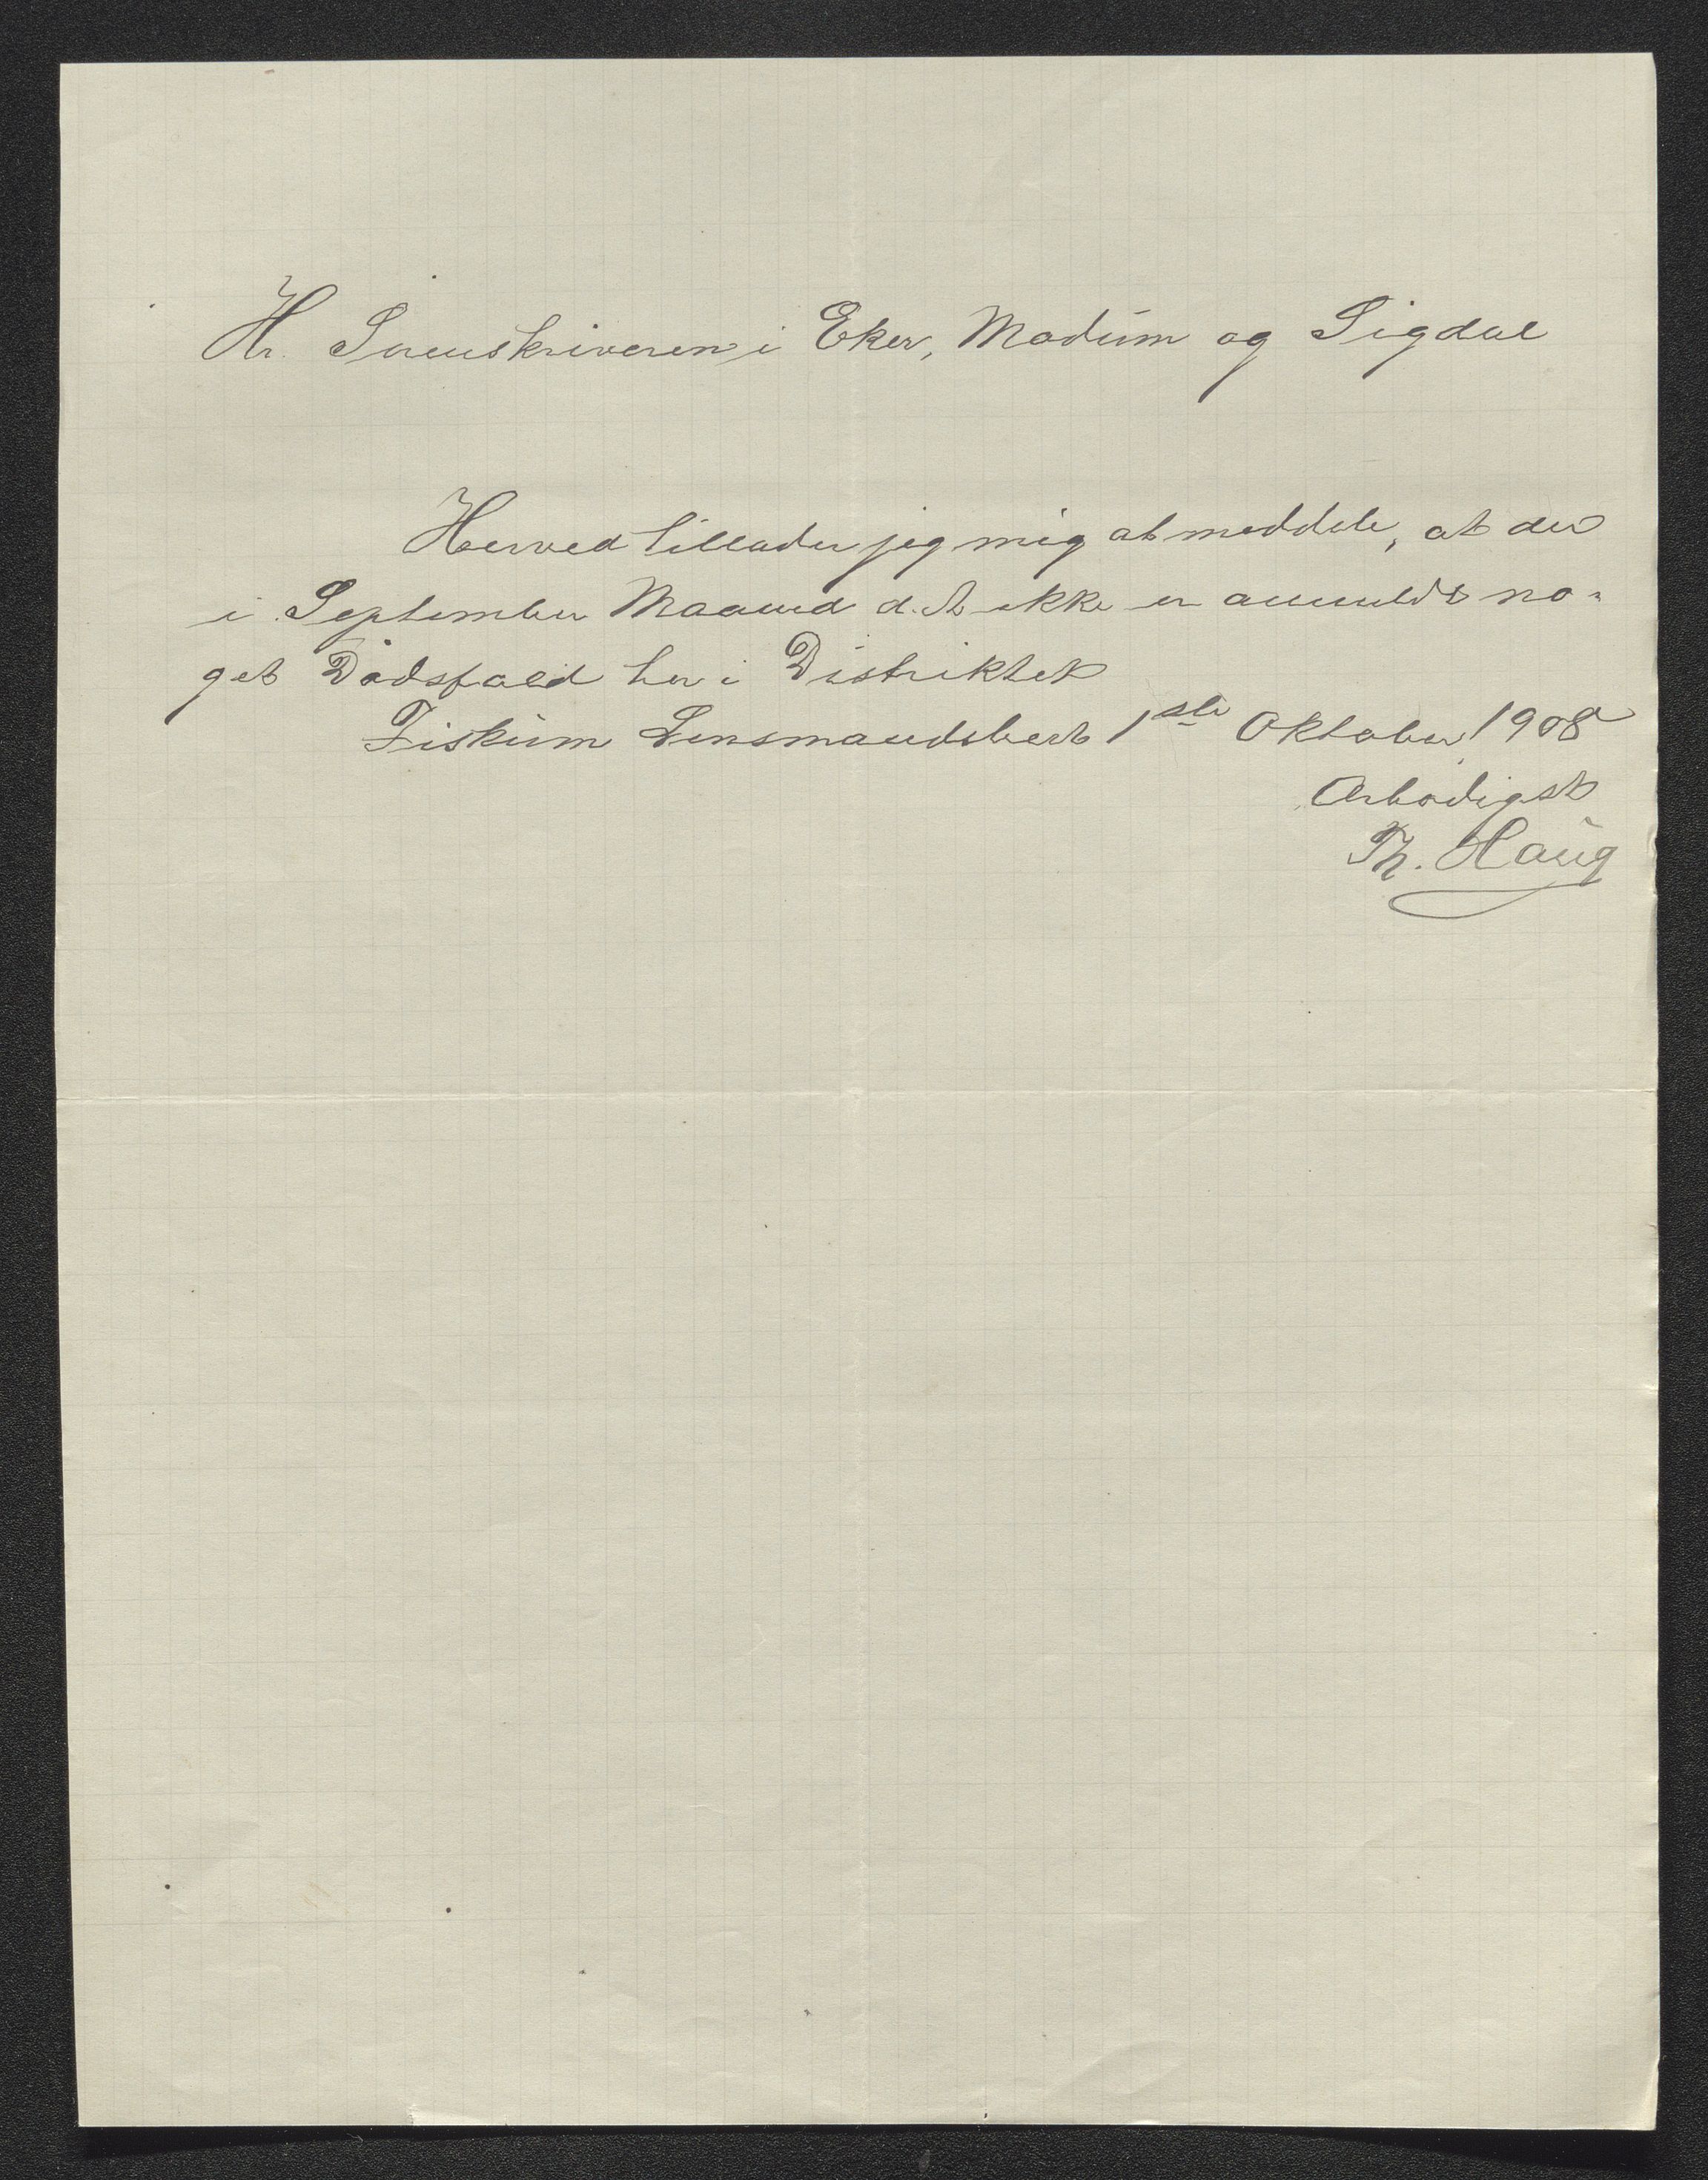 Hr. Sorenskriveren i Eker, Modum og Sigdal
Herved tillader jeg mig at meddele, at der
i September Maaned d. A ikke er anmeldt no-
get Dødsfald her i Distriktet
Fiskum Lensmandsbest 1ste Oktober 1908
Ærbødigst
Th. Haug